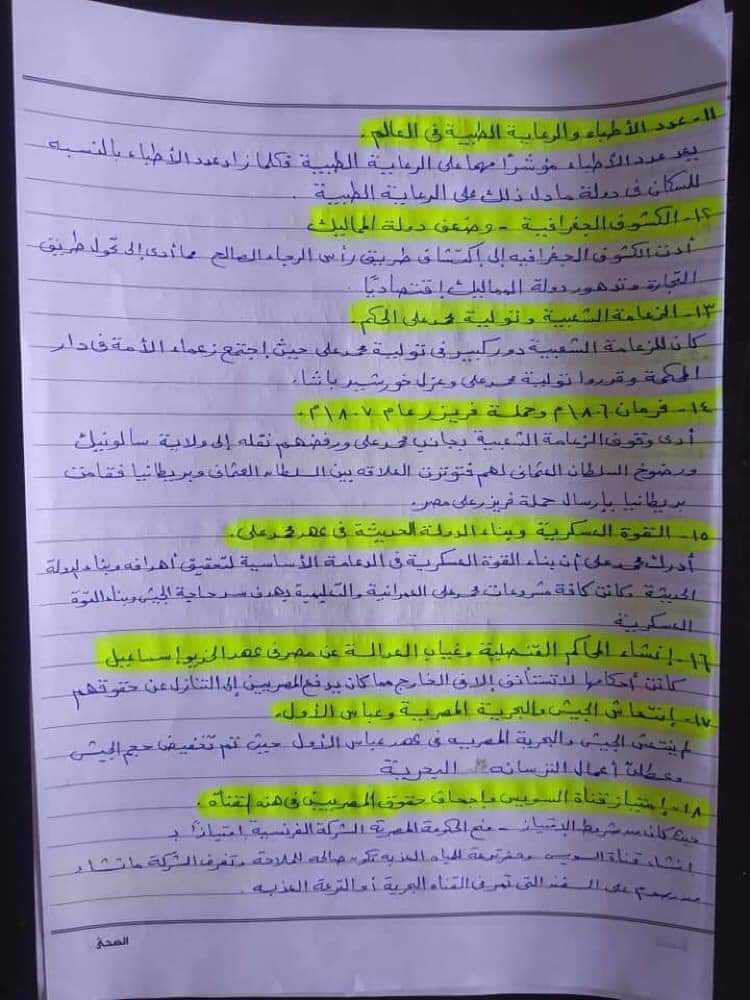 ١١- عدد الأطباء والرعاية الطبية فى العالم.
يعد عدد الأطباء مؤشرًا مهما على الرعاية الطبية فكلما زاد عدد الأطباء بالنسبه
للسكان فى دولة ما دل ذلك على الرعاية الطبية.
١٢- الكشوف الجغرافية - وضعف دولة المماليك
أدت الكشوف الجغرافيه إلى إكتشاف طريق رأس الرجاء الصالح مما أدى إلى تحول طريق
التجارة وتدهور دولة المماليك إقتصاديًا.
١٣- الزعامة الشعبية وتولية محمد على الحكم.
كان للزعامة الشعبية دور كبير فى تولية محمد على حيث إجتمع زعماء الأمة فى دار
المحكمة وقرروا تولية محمد على وعزل خورشيد باشا.
١٤- فرمان ١٨٠٦م وحملة فريزر عام ١٨٠٧م.
أدى وقوف الزعامة الشعبية بجانب محمد على ورفضهم نقله إلى ولاية سالونيك
ورضوخ السلطان العثمانى لهم فتوترت العلاقه بين السلطان العثمانى وبريطانيا فقامت
بريطانيا بإرسال حملة فريزر على مصر.
١٥- القوة العسكرية وبناء الدولة الحديثة فى عهد محمد على.
أدرك محمد على أن بناء القوة العسكرية هى الدعامة الأساسية لتحقيق أهدافه وبناء الدولة
الحديثة وكانت كافة مشروعات محمد على العمرانية والتعليمية بهدف سد حاجة الجيش وبناء القوة
العسكرية
١٦- إنشاء المحاكم القنصلية وغياب العدالة عن مصر فى عهد الخديو إسماعيل
كانت أحكامها لا تستأنف إلا فى الخارج مما كان يدفع المصريين إلى التنازل عن حقوقهم
١٧- إنتعاش الجيش والبحرية المصرية وعباس الأول.
لم ينتعش الجيش والبحرية المصريه فى عهد عباس الأول حيث تم تخفيض حجم الجيش
وعطلت أعمال الترسانه البحرية
١٨- إمتياز قناة السويس وإجحاف حقوق المصريين فى هذه القناة.
حيث كان من شروط الإمتياز - منح الحكومة المصرية الشركة الفرنسية إمتيازًا بـ
إنشاء قناة السويس وحفر ترعة للمياه العذبه تكون صالحه للملاحة وتفرض الشركة ما تشاء
من رسوم على السفن التى تمر فى القناه البحرية أو الترعة العذبه.